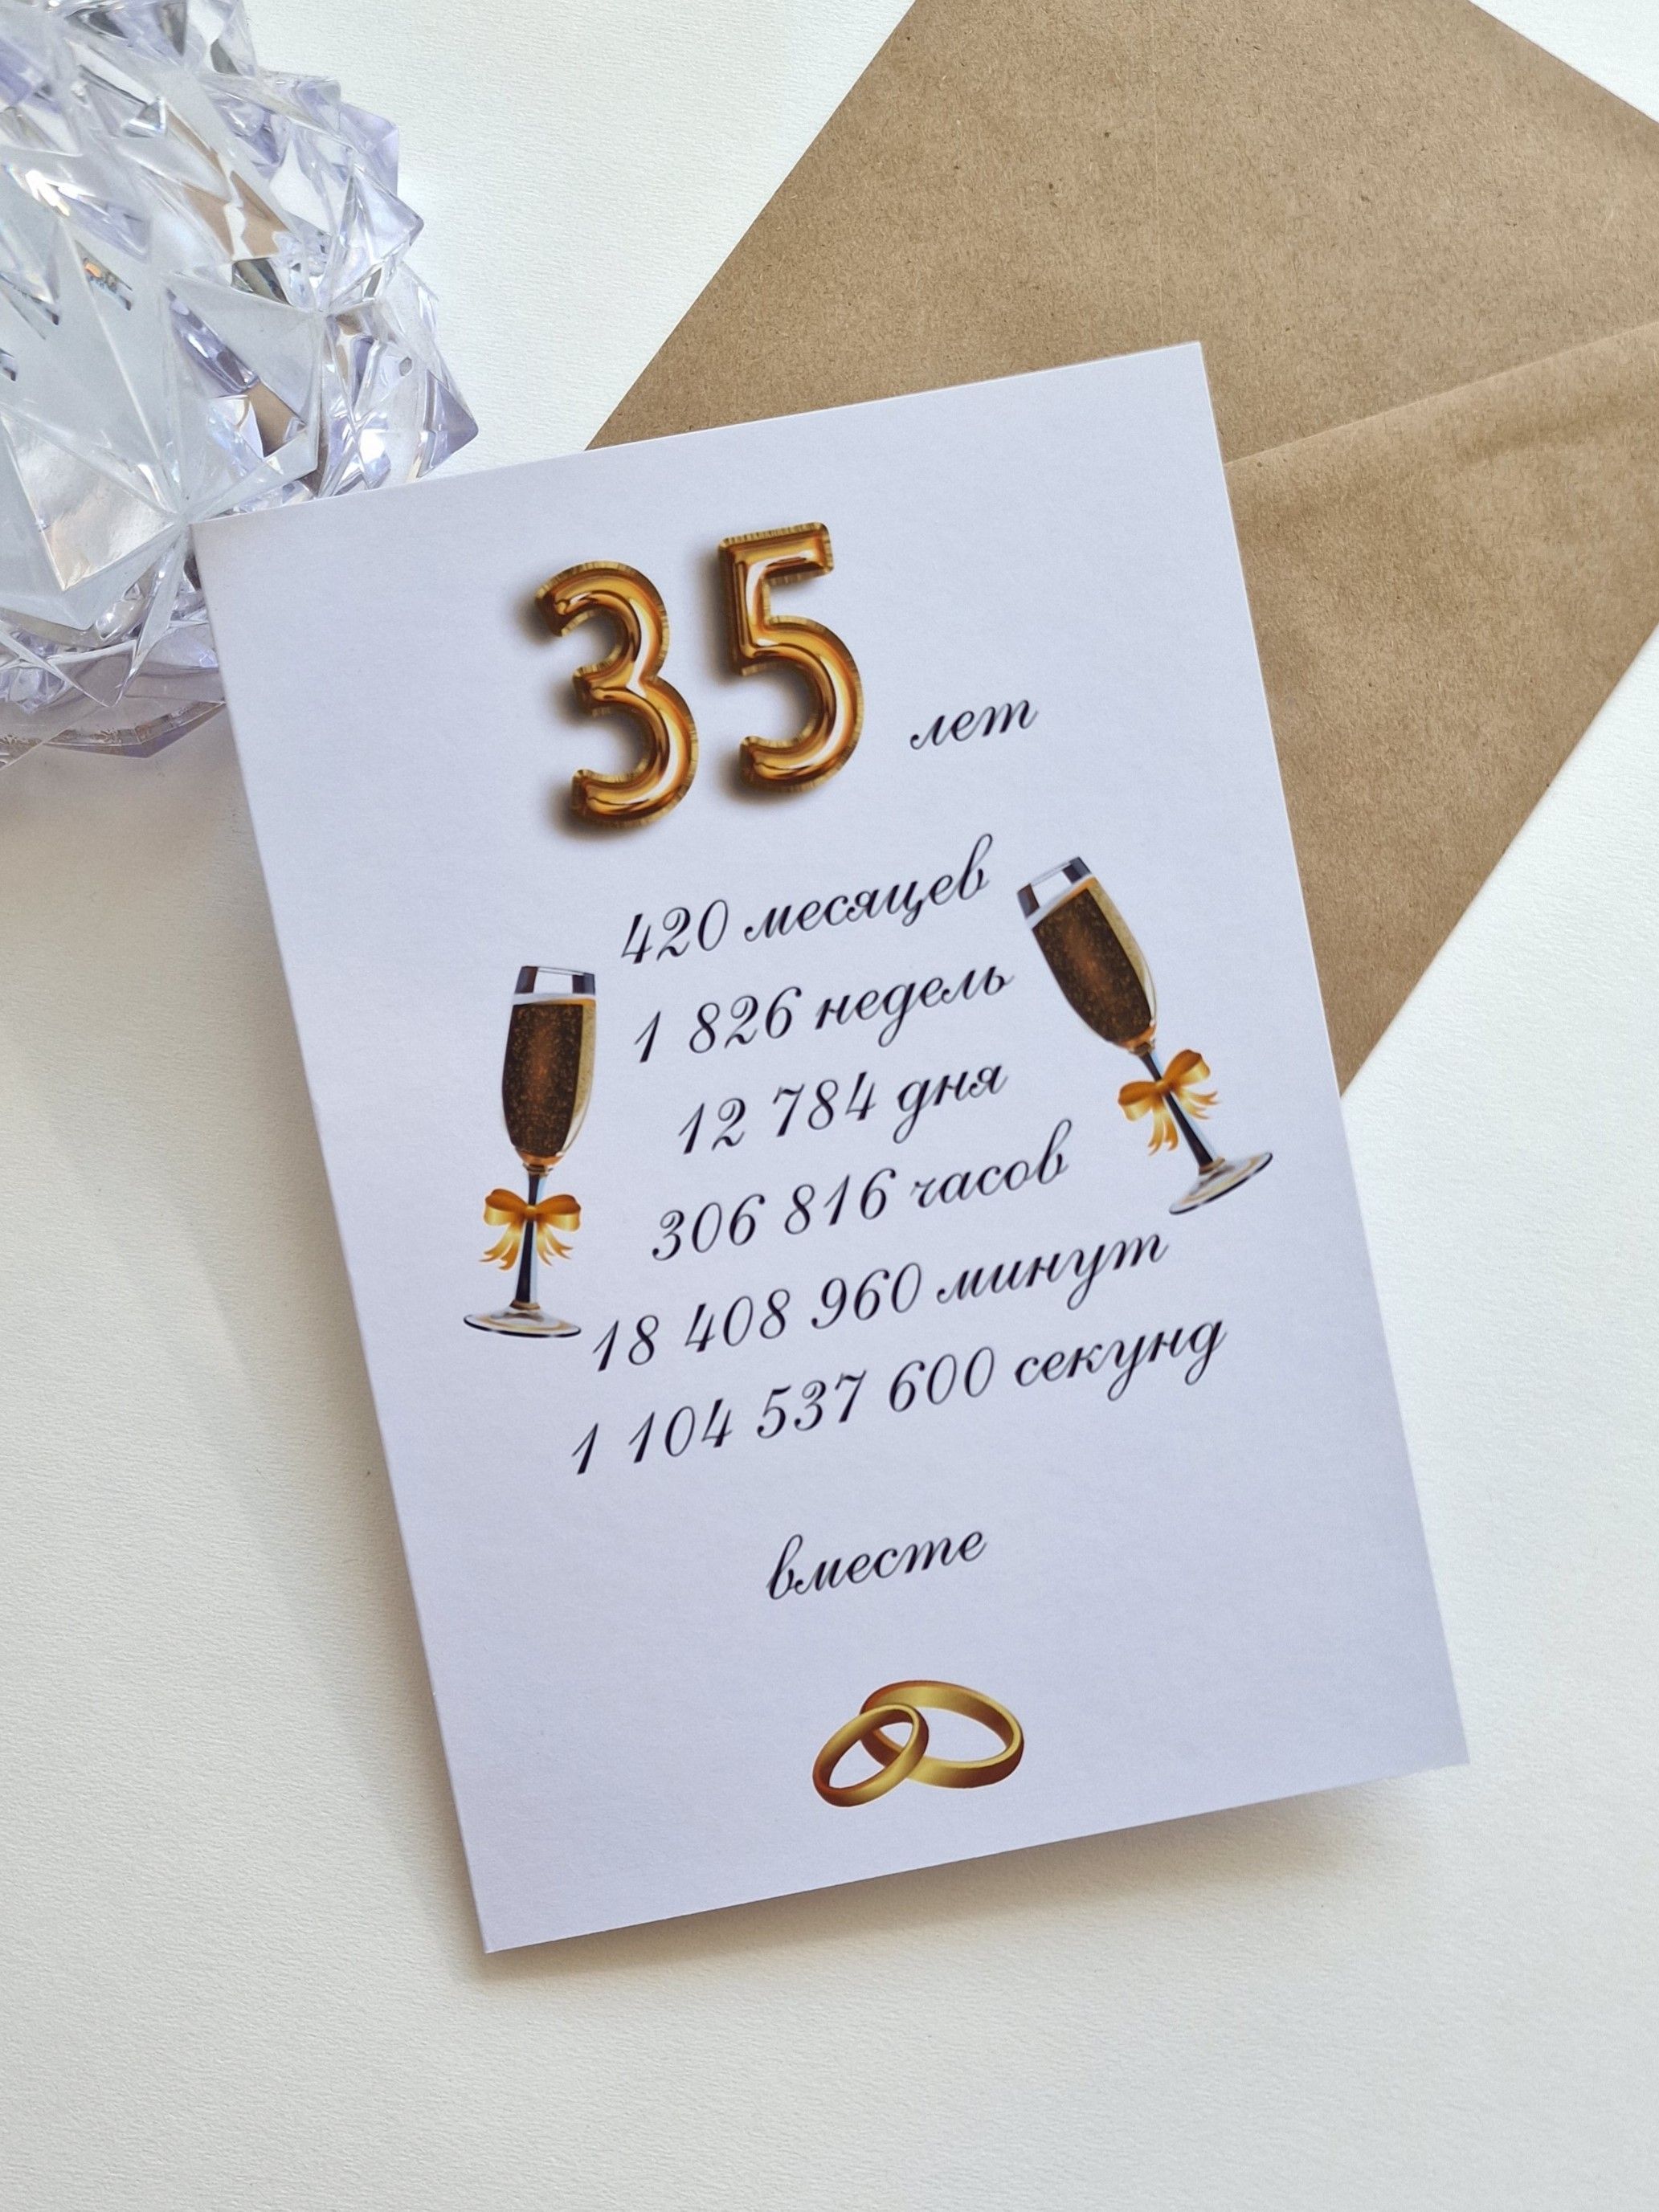 35 лет
420 месяцев
1 826 недель
12 784 дня
306 816 часов
18 408 960 минут
1 104 537 600 секунд
вместе